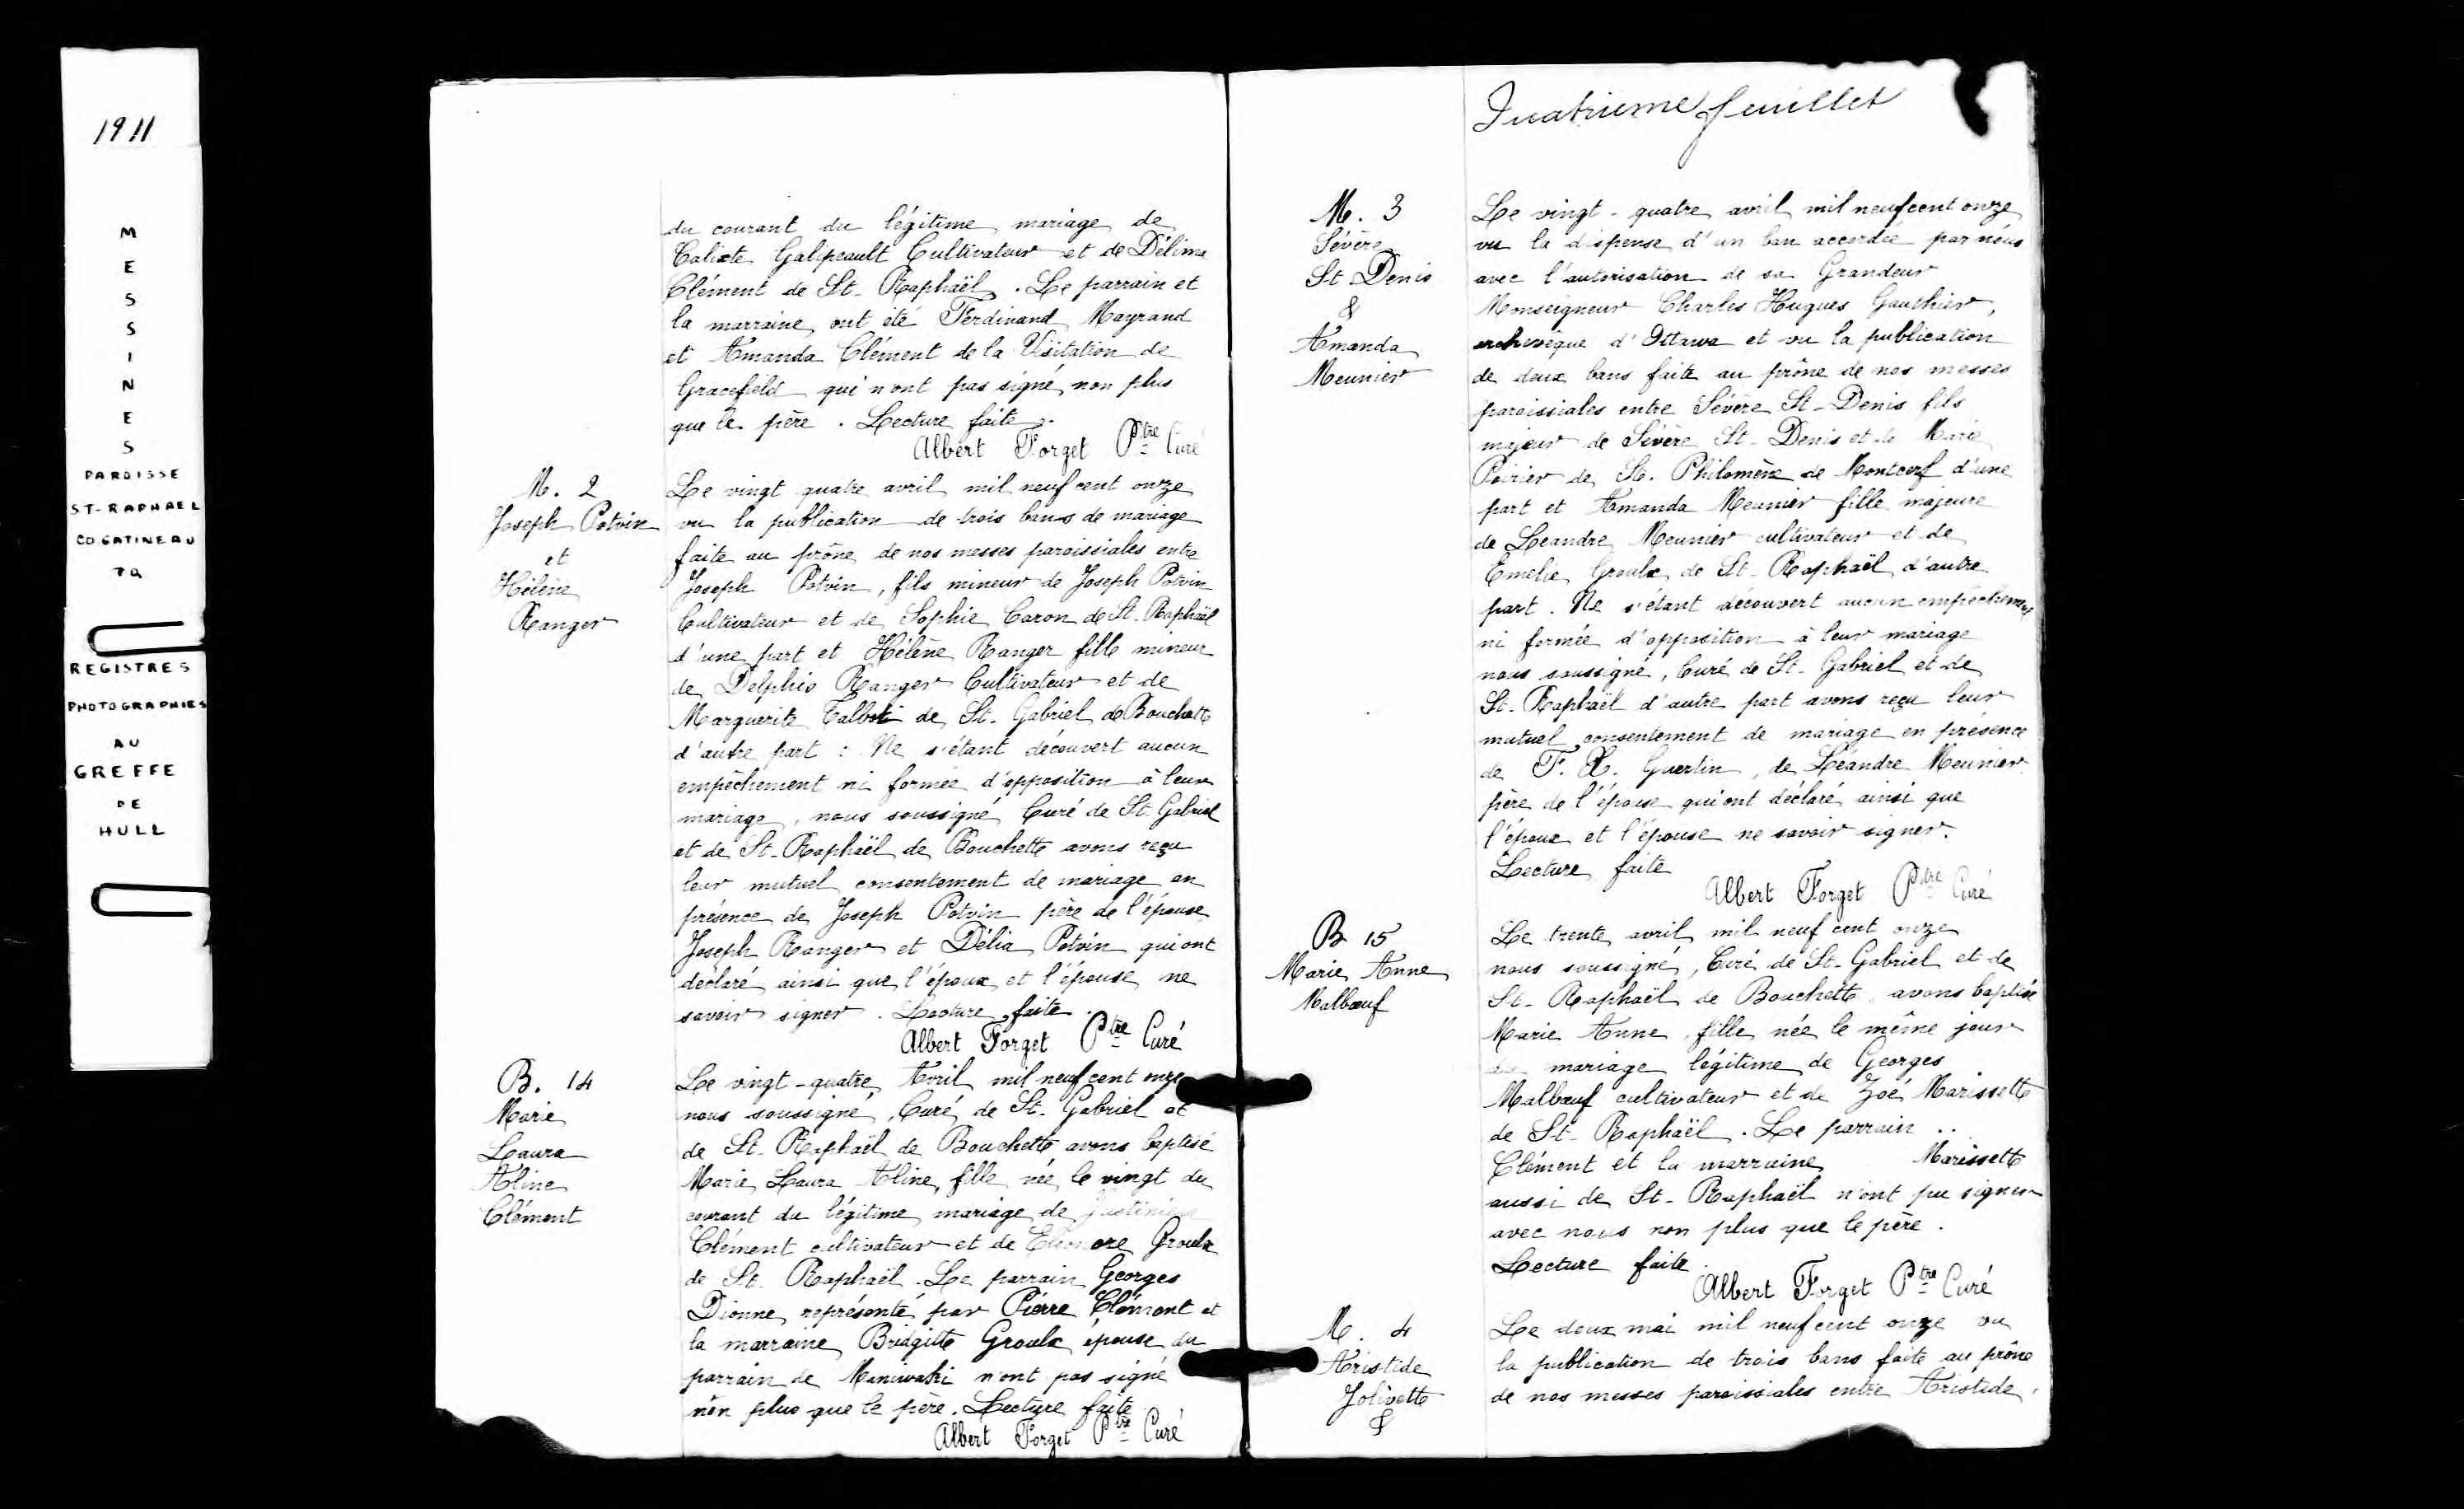 1911
MESSINES
PAROISSE
ST-RAPHAEL
CO GATINEAU
PQ
REGISTRES
PHOTOGRAPHIES
AU
GREFFE
DE
HULL
du courant du légitime mariage de
Calixte Galipeault Cultivateur et de Délima
Clément de St-Raphaël. Le parrain et
la marraine ont été Ferdinand Mayrand
et Amanda Clément de la Visitation de
Gracefield qui n'ont pas signé, non plus
que le père. Lecture faite.
Albert Forget Ptre Curé
M. 2
Joseph Potvin
et
Hélène
Ranger
Le vingt quatre avril mil neuf cent onze
vu la publication de trois bans de mariage
faite au prône de nos messes paroissiales entre
Joseph Potvin, fils mineur de Joseph Potvin
Cultivateur et de Sophie Caron de St-Raphaël
d'une part et Hélène Ranger fille mineur
de Delphis Ranger Cultivateur et de
Marguérite Talbot de St. Gabriel de Bouchette
d'autre part : Ne s'étant découvert aucun
empêchement ni formée d'opposition à leur
mariage, nous soussigné Curé de St. Gabriel
et de St-Raphaël de Bouchette avons reçu
leur mutuel consentement de mariage en
présence de Joseph Potvin père de l'épouse,
Joseph Ranger et Délia Potvin qui ont
déclaré ainsi que l'époux et l'épouse ne
savoir signer. Lecture faite.
Albert Forget Ptre Curé
B. 14
Marie
Laura
Aline
Clément
Le vingt-quatre Avril mil neuf cent onze
nous soussigné, Curé de St-Gabriel et
de St-Raphaël de Bouchette avons baptisé
Marie Laura Aline, fille née le vingt du
courant du légitime mariage de
Clément cultivateur et de Eléonore Groulx
de St. Raphaël. Le parrain Georges
Dionne représenté par Pierre Clément et
la marraine Bridgitte Groulx épouse du
parrain de Maniwaki n'ont pas signé
non plus que le père. Lecture faite
Albert Forget Ptre Curé
Quatrième feuillet
M. 3
Sévère
St Denis
&
Amanda
Meunier
Le vingt-quatre avril mil neuf cent onze
vu la dispense d'un ban accordée par nous
avec l'autorisation de sa Grandeur
Monseigneur Charles Hugues Gauthier,
archevêque d'Ottawa et vu la publication
de deux bans faite au prône de nos messes
paroissiales entre Sévère St-Denis fils
majeur de Sévère St-Denis et de Marie
Poirier de St. Philomène de Montcerf d'une
part et Amanda Meunier fille majeure
de Leandre Meunier cultivateur et de
Emelie Groulx de St-Raphaël d'autre
part. Ne s'étant découvert aucun empêchement
ni formée d'opposition à leur mariage
nous soussigné, Curé de St-Gabriel et de
St-Raphaël d'autre part avons reçu leur
mutuel consentement de mariage en présence
de F. X. Guertin, de Léandre Meunier
père de l'épouse qui ont déclaré ainsi que
l'époux et l'épouse ne savoir signer.
Lecture faite
Albert Forget Ptre Curé
B 15
Marie Anne
Malboeuf
Le trente avril mil neuf cent onze
nous soussigné, Curé de St-Gabriel et de
St-Raphaël de Bouchette, avons baptisé
Marie Anne, fille née le même jour
mariage légitime de Georges
Malboeuf cultivateur et de Zoé Marissette
de St-Raphaël. Le parrain ..
Clément et la marraine Marissette
aussi de St-Raphaël n'ont pu signer
avec nous non plus que le père.
Lecture faite.
Albert Forget Ptre Curé
M. 4
Aristide
Jolivette
&
Le deux mai mil neuf cent onze vu
la publication de trois bans faite au prône
de nos messes paroissiales entre Aristide